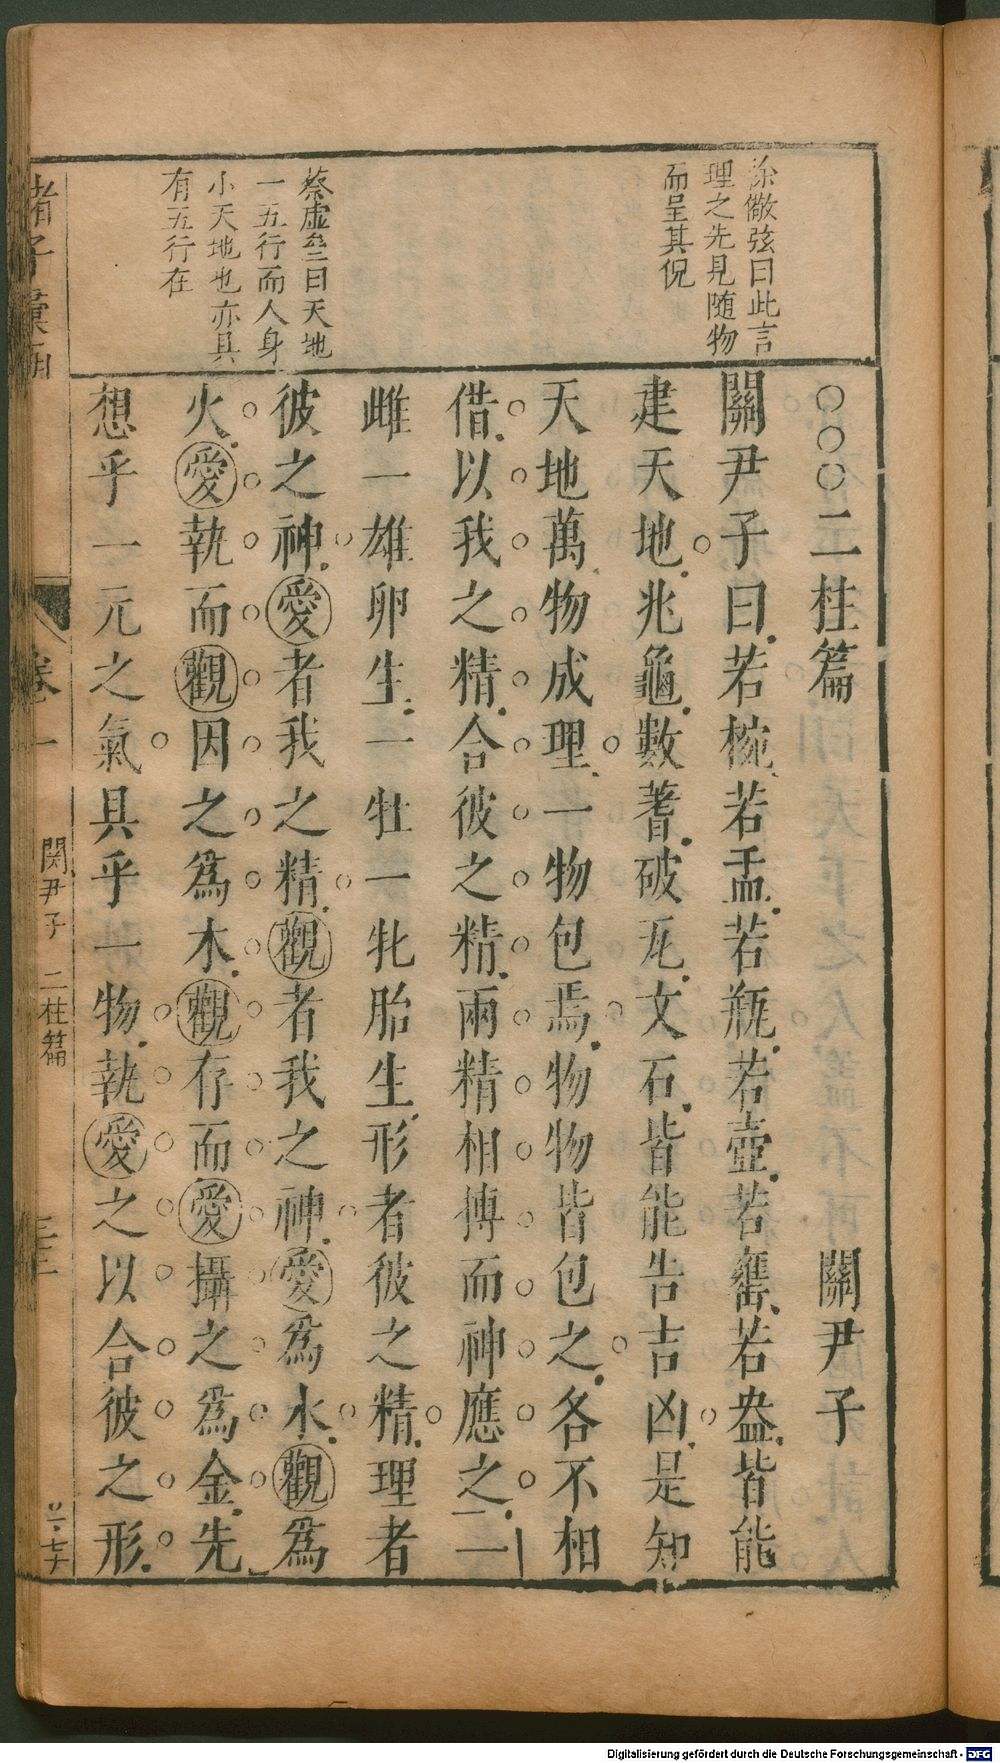 徐儆弦曰此言
理之先見随物
而呈其倪
蔡虛𡊮曰天地
一五行而人身
小天地也亦具
有五行在
○○○二柱篇 關尹子
關尹子曰若椀若盂若瓶若壺若甕若盎皆能
建天地兆龜數蓍破瓦文石皆能告吉凶是知
天地萬物成理一物包焉物物皆包之各不相
借以我之精合彼之精兩精相搏而神應之一
雌一雄卵生一牡一牝胎生形者彼之精理者
彼之神愛者我之精觀者我之神愛爲水觀爲
火愛執而觀因之爲木觀存而愛攝之爲金先
想乎一元之氣具乎一物執愛之以合彼之形
諸子彙函
卷一
関尹子 二柱篇
Digitalisierung gefördert durch die Deutsche Forschungsgemeinschaft - DFG